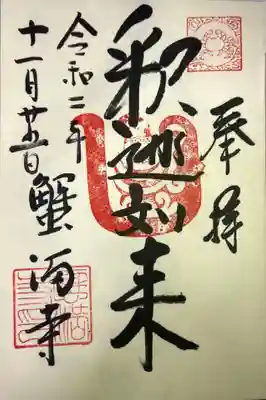 奉拝
釈迦如来
令和二年
十一月廿五日蟹満寺